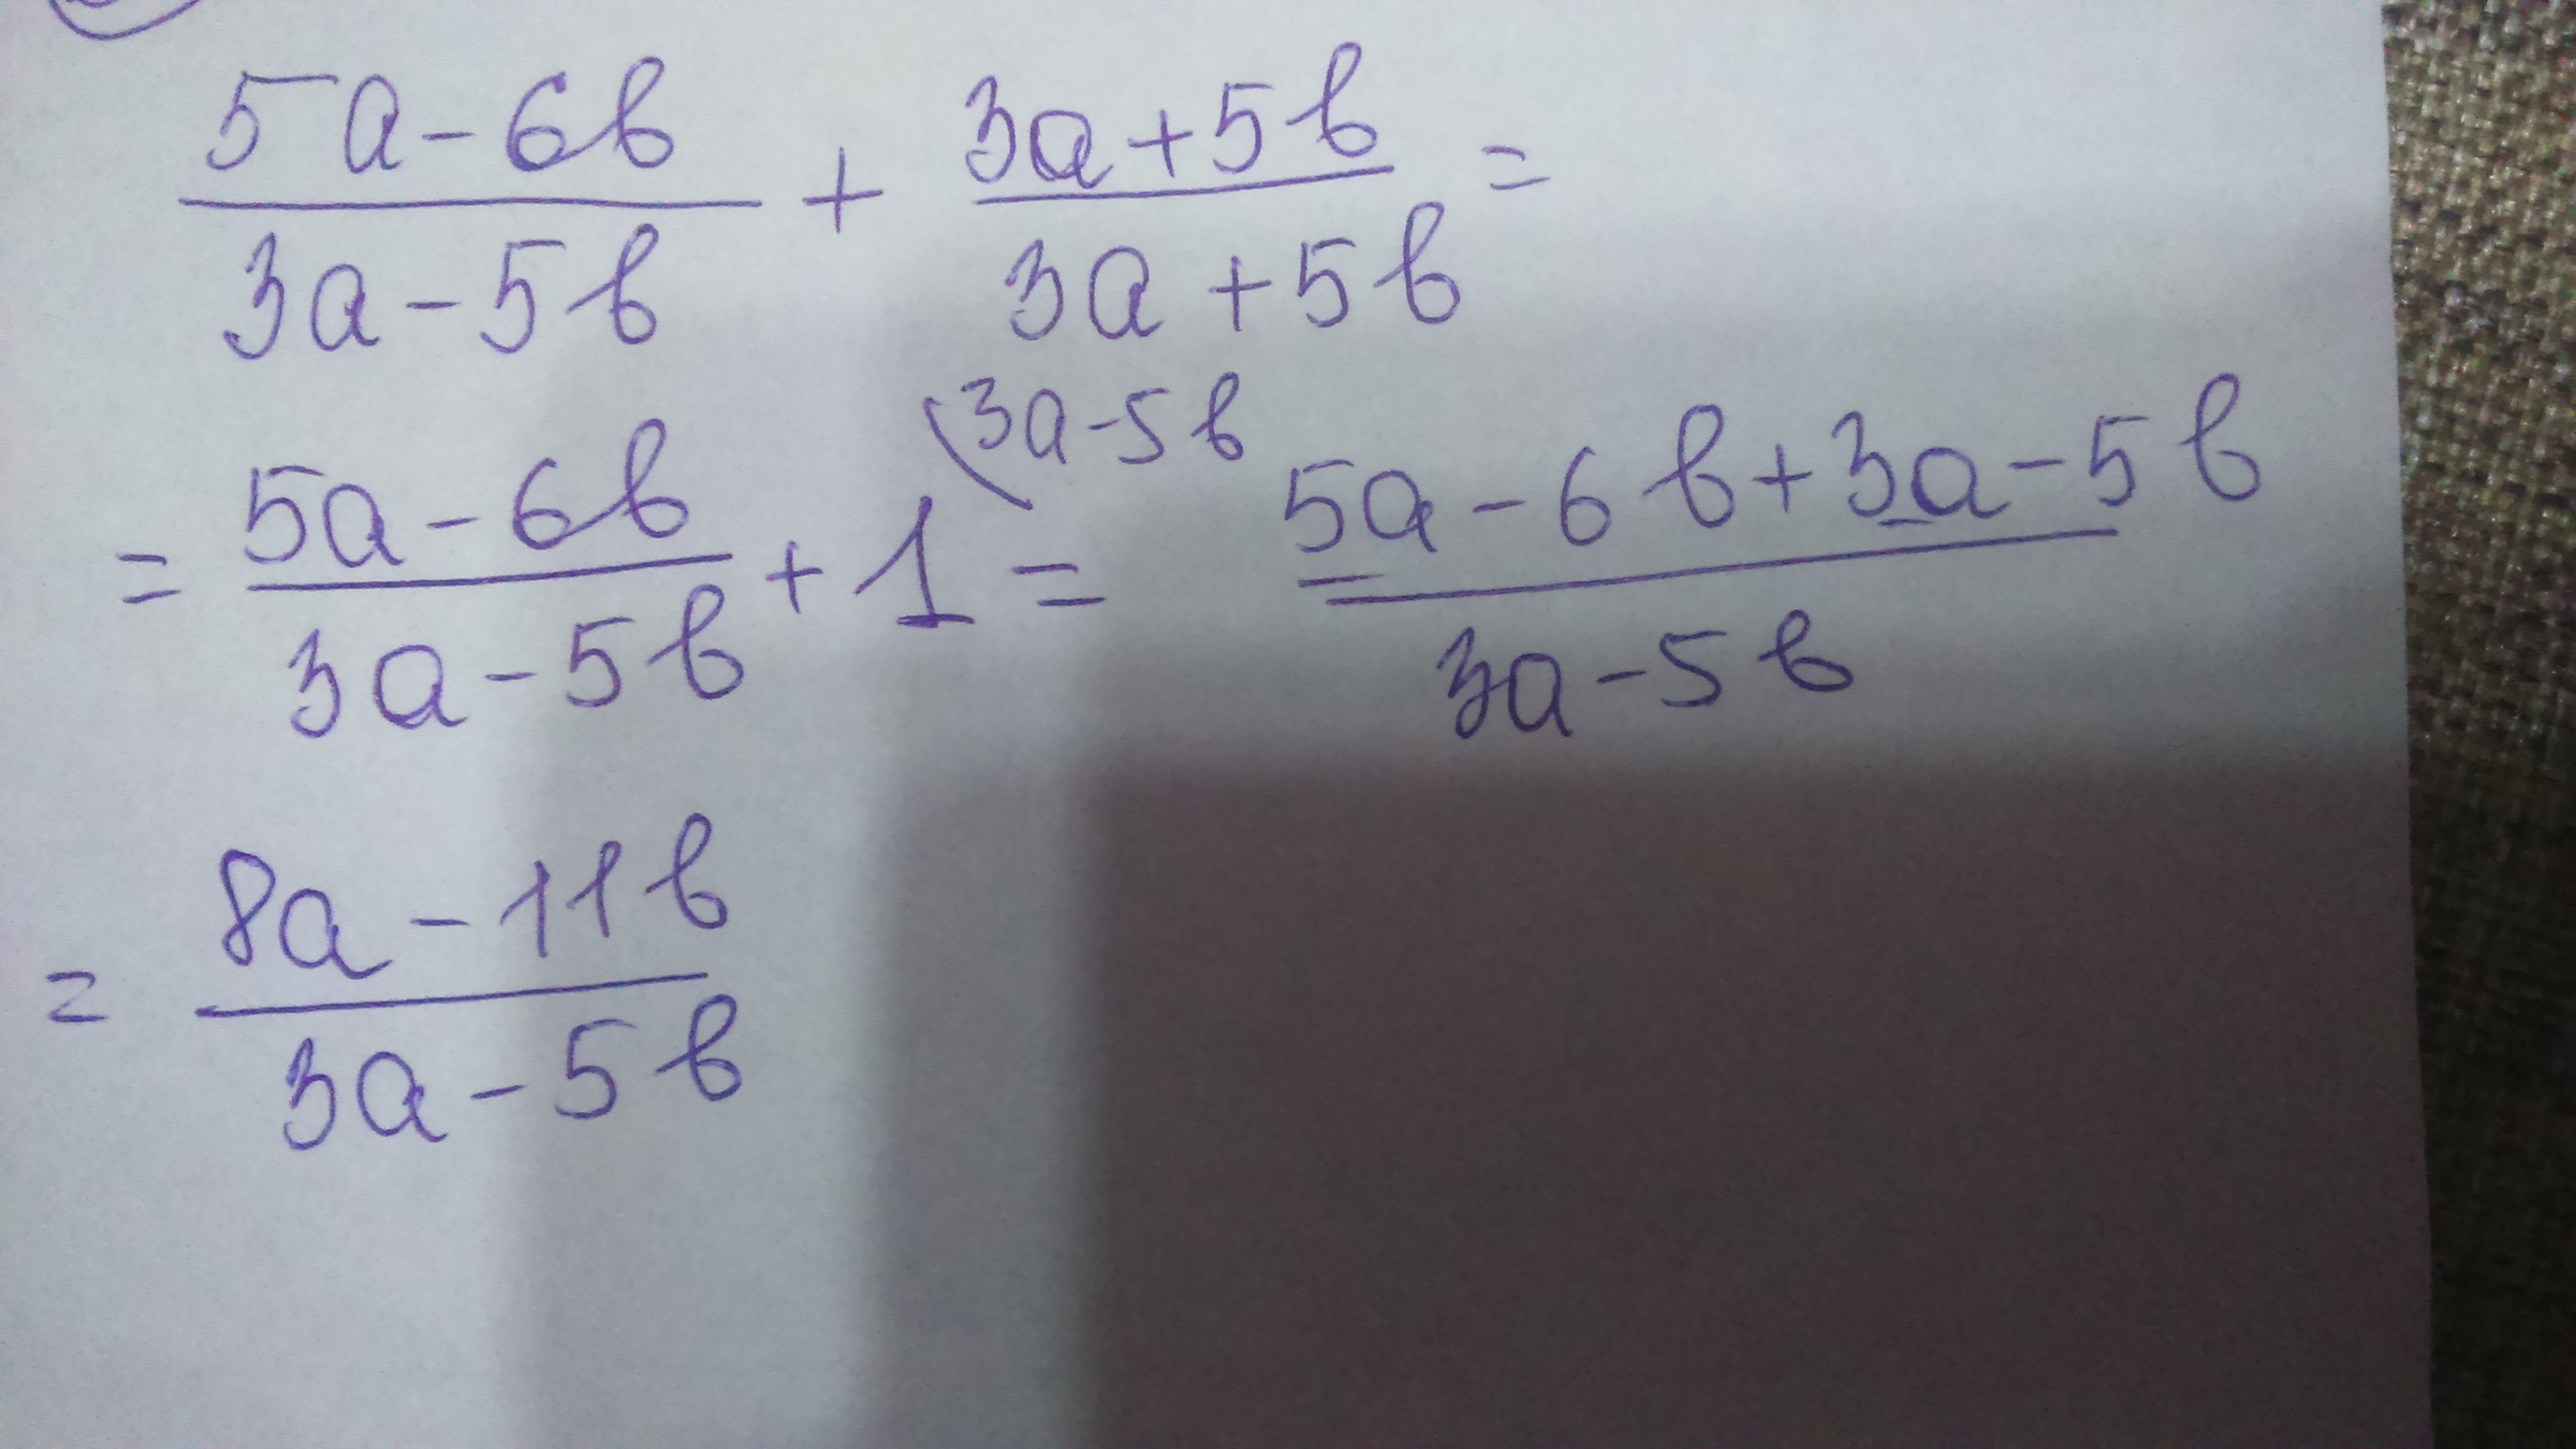 5a-6b/3a-5b + 3a+5b/3a+5b =
= 5a-6b/3a-5b + 1 (3a-5b = 5a-6b+3a-5b/3a-5b
= 8a-11b/3a-5b